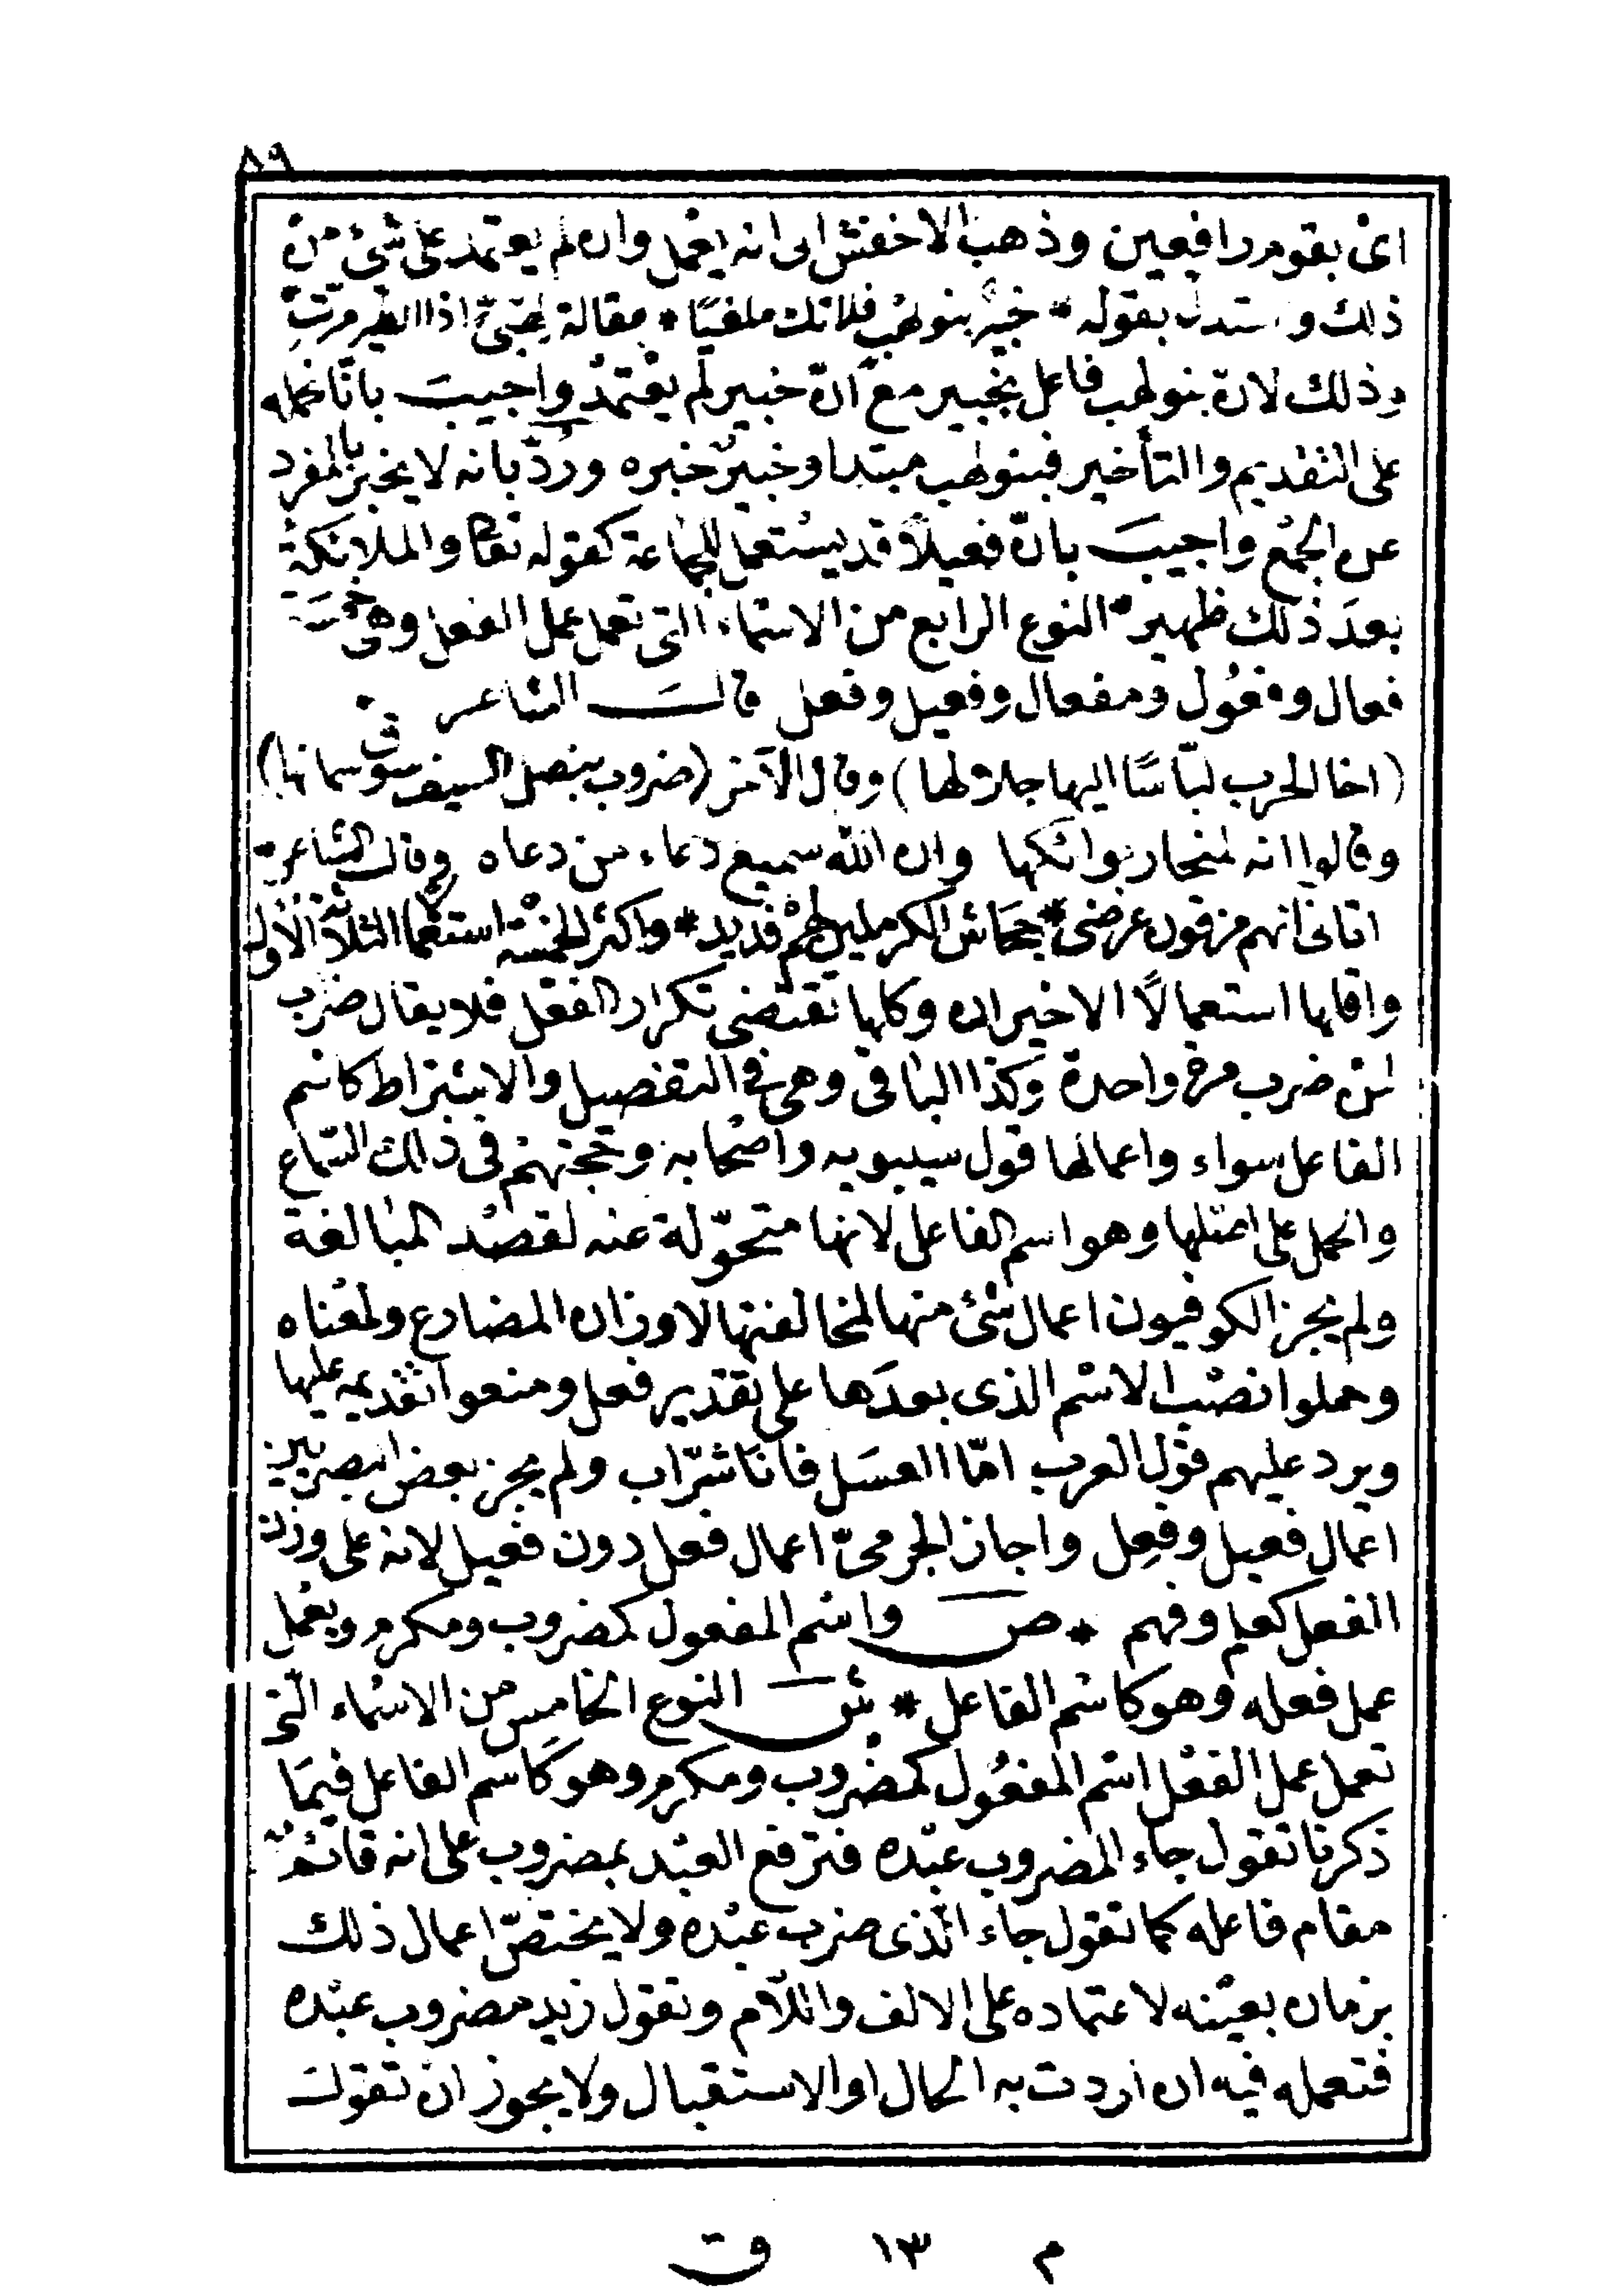 ٨٩
اى بقوم رافعين وذهب الاخفش الى انه يعمل وان لم يعتمد على شئ من
ذلك واستدل بقوله * خبير بنو لهب فلاتك ملغيًا * مقالة لهبىّ اذا الطير مرتِ
وذلك لان بنو لهب فاعل بخبير مع انّ خبير لم يعتمد واجيبَ بانّا نحمله
على التقديم والتأخير فبنو لهب مبتدا وخبيرٌ خبره ورُدّ بانه لا يخبر بالمفرد
عن الجمع واجيبَ بانّ فعيلاً قد يستعمل للجماعة كقوله تعالى والملائكةُ
بعدَ ذلك ظهير * النوع الرابع من الاسماء التى تعمل عمل الفعل وهى خمسَة
فعال وفعُول ومفعال وفعيل وفعل قالَ الشاعر
(اخا الحرب لبّاسًا اليها جلالها) وقال الآخر (ضروب بنصل السيف سوق سمانها)
وقالوا انه لمنحار بوائكها وان الله سميع دعاء من دعاه وقال الشاعر
اتانى انهم مزقون عرضى * جحاش الكرملين لهم فديد * واكثر الخمسة استعمالا الثلاثة الاول
واقلها استعمالًا الاخيران وكلها تقتضى تكرار الفعل فلا يقال ضرّب
لمن ضرب مرة واحدة وكذا الباقى وهى فى التفصيل والاشتراط كاسم
الفاعل سواء واعمالها قول سيبويه واصحابه وحجتهم فى ذلك السّماع
والحمل على اصلها وهو اسم الفاعل لانها متحوّلة عنه لقصد المبالغة
ولم يجز الكوفيون اعمال شئ منها لمخالفتها لاوزان المضارع ولمعناه
وحملوا نصب الاسم الذى بعدَها على تقدير فعل ومنعوا تقديمه عليها
ويرد عليهم قول العرب امّا العسَل فانا شرّاب ولم يجز بعض البصريين
اعمال فعيل وفعِل واجاز الجرمىّ اعمال فعل دون فعيل لانه على وزن
الفعل كعلم وفهم * ص واسم المفعول كمضروب ومكرم ويعمل
عمل فعله وهو كاسم الفاعل * ش النوع الخامِس من الاسماء الّتى
تعمل عمل الفعل اسم المفعُول كمضروب ومكرم وهو كاسم الفاعل فيمَا
ذكرنا تقول جاء المضروب عبده فترفع العبد بمضروب على انه قائمٌ
مقام فاعله كما تقول جاء الّذى ضرب عبده ولا يختصّ اعمال ذلك
بزمان بعينه لاعتماده على الالف واللّام وتقول زيد مضروب عبده
فتعمله فيه ان اردت به الحال او الاستقبال ولا يجوز ان تقولَ
م ١٣ ق